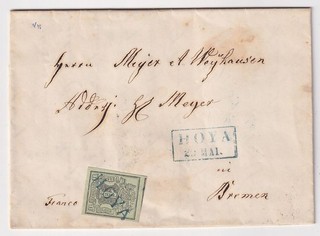 Herrn Meyer & Weyhausen
Meyer
HOYA
23 MAI.
in
HOYA
Franco
Bremen